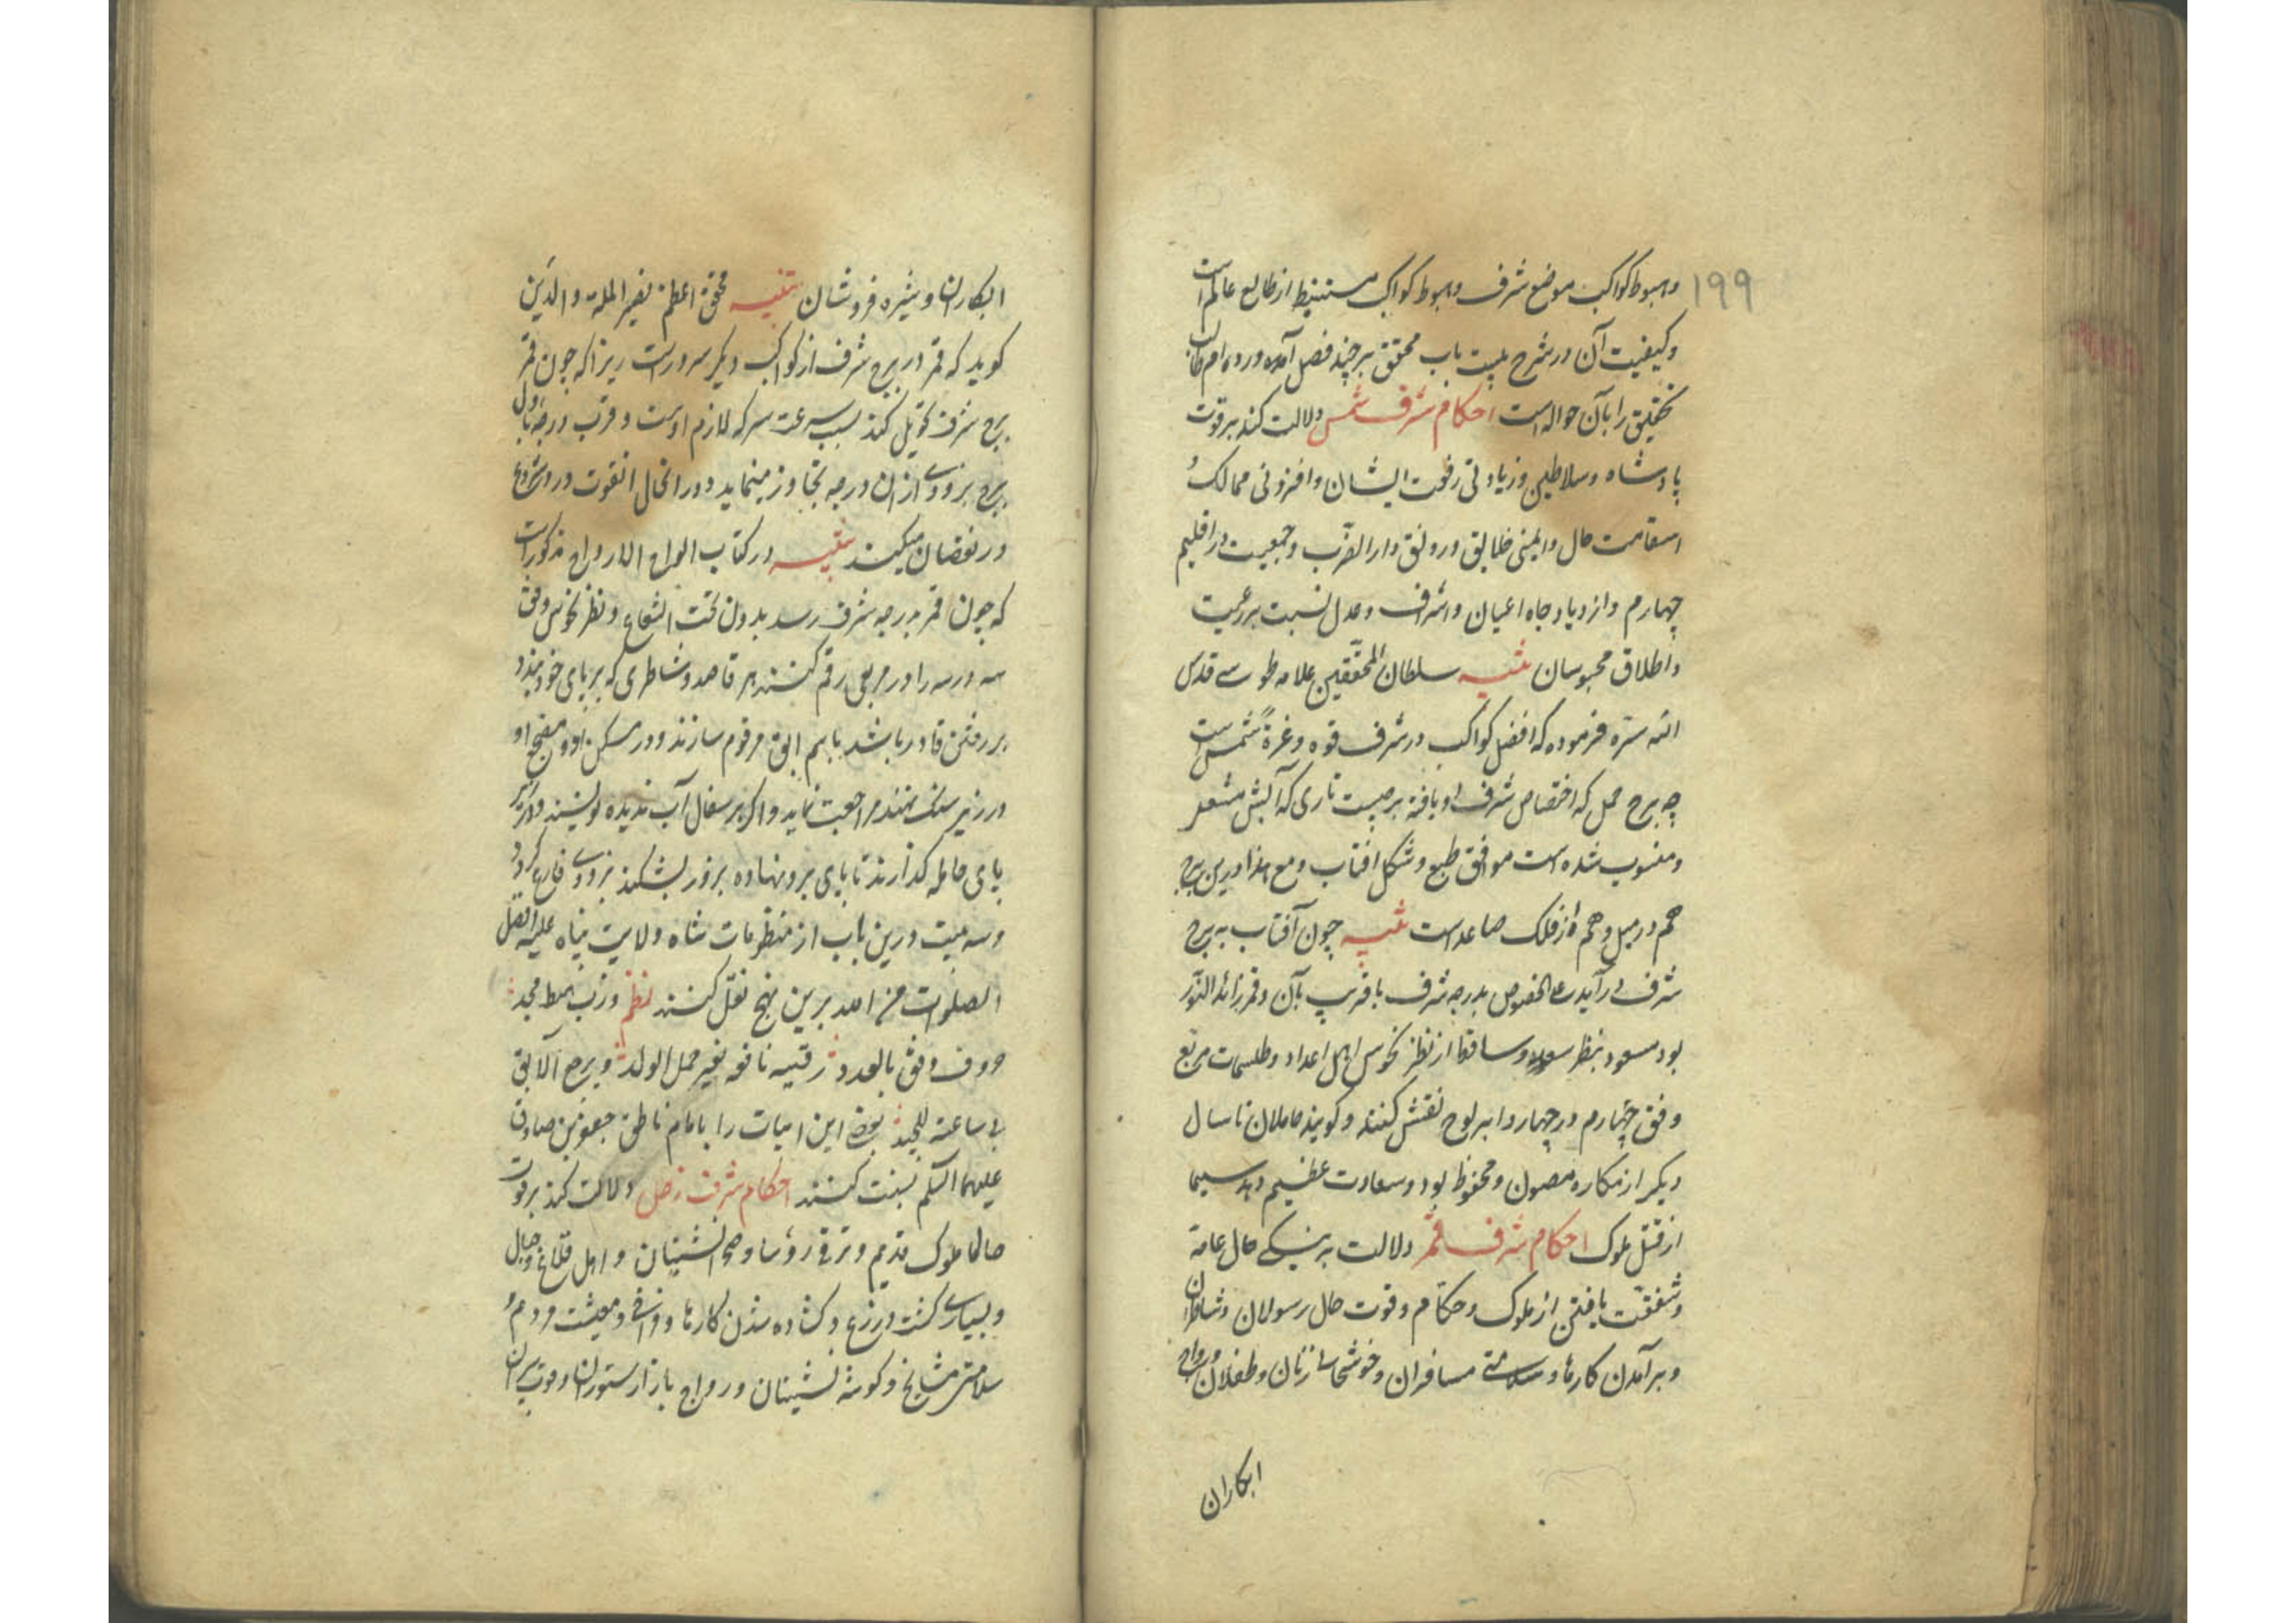 ۱۹۹
وهبوط کواکب موضع شرف وهبوط کواکب مستنبط از طالع عالم است
وکیفیت آن در شرح بیست باب محقق بر چند فصل آمده ورد مرام
تحقیق را بآن حواله است احکام شرف شمس دلالت کند بر قوت
پادشاه وسلاطین وزیادتی رفعت ایشان وافزونی ممالک و
استقامت حال وایمنی خلایق ورونق دار الضرب وجمعیت در اقلیم
چهارم وازدیاد جاه اعیان واشراف وعدل نسبت برعیت
واطلاق محبوسان تنبیه سلطان المحققین علامه طوسی قدس
الله سره فرموده که افضل کواکب در شرف قوة وغرة شمس است
چه برج حمل که اختصاص شرف او یافته برجیست ناری که آتش مشعر
ومنسوب شده است موافق طبع وشکل افتاب ومع هذا درین برج
هم در میل وهم از فلک صاعد است تنبیه چون آفتاب به برج
شرف در آید علی الخصوص بدرجه شرف یا قریب بآن وقمر زائد النور
بود مسعود بنظر سعود وساقط از نظر نحوس اهل اعداد وطلسمات مربع
وفق چهارم در چهار را بر لوح نقش کنند وگویند حاملان تا سال
دیگر از مکاره مصون ومحفوظ بود وسعادت عظیم دهد سیما
از قتل ملوک احکام شرف قمر دلالت به نیکی حال عامه
وشفقت یافتن از ملوک وحکام وقوت حال رسولان وشاطران
وبرآمدن کارها وسلامتی مسافران وخوشحالی زنان وطفلان ورواج
ابکاران
ابکاران وشیره فروشان تنبیه محقق اعظم نصیر الملة والدین
گوید که قمر در برج شرف از کواکب دیگر سرور است زیرا که چون قمر
برج شرف تحویل کند بسبب سرعت سیر که لازم اوست وقرب درجه باول
برج بزودی از ان درجه تجاوز مینماید ودر انحال انقوت در او شروع
در نقصان میکند تنبیه در کتاب الواح الارواح مذکور است
که چون قمر بدرجه شرف رسد بدون تحت الشعاع ونظر نحوس وفق
سه در سه را در مربعی رقم کنند هر قاصد وشاطری که بر پای خود بندد
بر رفتن قادر باشد باسم ابق مرقوم سازند ودر مسکن او ومضجع او
در زیر سنگ نهند مراجعت نماید واگر بر سفال آب ندیده نویسند ودر زیر
پای حامله گذارند تا پای برو نهاده بزور بشکند بزودی فارغ گردد
وسه بیت درین باب از منظومات شاه ولایت پناه علیه افضل
الصلوات من الله برین نهج نقل کنند نظم وزب بهط مجد
حروف وفق بالعدد رقیه نافعه لغیر حمل الولد ویرجع الآبق
فی ساعته للبلد بعضی این ابیات را بامام ناطق جعفر بن صادق
علیهما السلم نسبت کنند احکام شرف زحل دلالت کند بر قوت
حالها ملوک قدیم وترقی رؤسا وصحرانشینان واهل قلاع وجبال
وبسیاری کشت وزرع وگشاده شدن کارها وفراخی ومعیشت مردم و
سلامتی مشایخ وگوشه نشینان ورواج بازار ستوران وقوت پیران